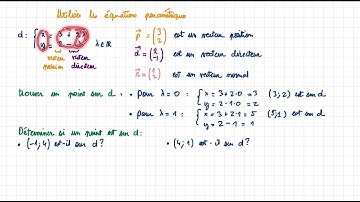 Utiliser les équations paramétriques
d: { x = 3 + 2λ λ∈ℝ
y =
vecteur position vecteur directeur
p⃗ = (3 2) est un vecteur position
d⃗ = (2 -1) est un vecteur directeur
n⃗ = (1 2) est un vecteur normal
trouver un point sur d: • pour λ = 0 : { x = 3 + 2·0 = 3 (3;2) est sur d
y = 2 - 1·0 = 2
• pour λ = 1 : { x = 3 + 2·1 = 5 (5;1) est sur d
y = 2 - 1 = 1
Déterminer si un point est sur d:
• (-1; 4) est-il sur d? • (4; 1) est-il sur d?